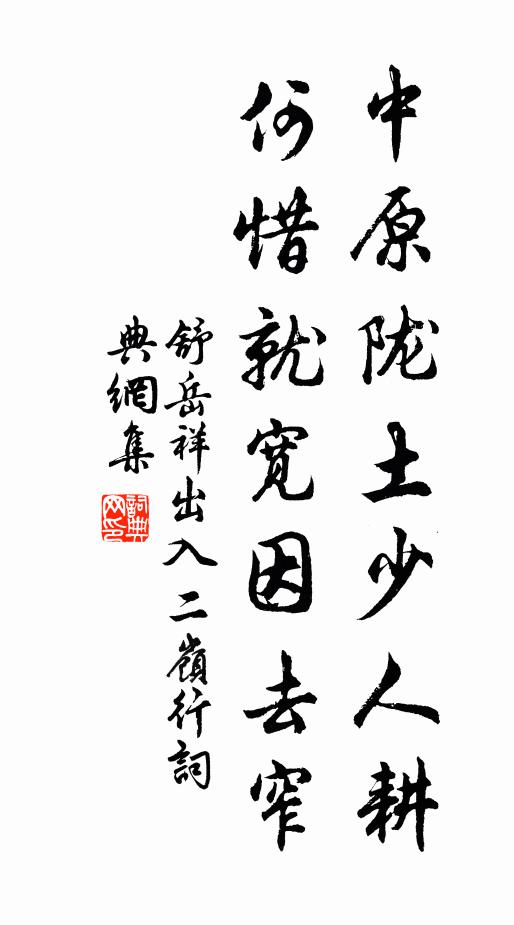 中原陇土少人耕
何惜就宽因去窄
舒岳祥出入二嶺行詞
典網集
詞典
网印